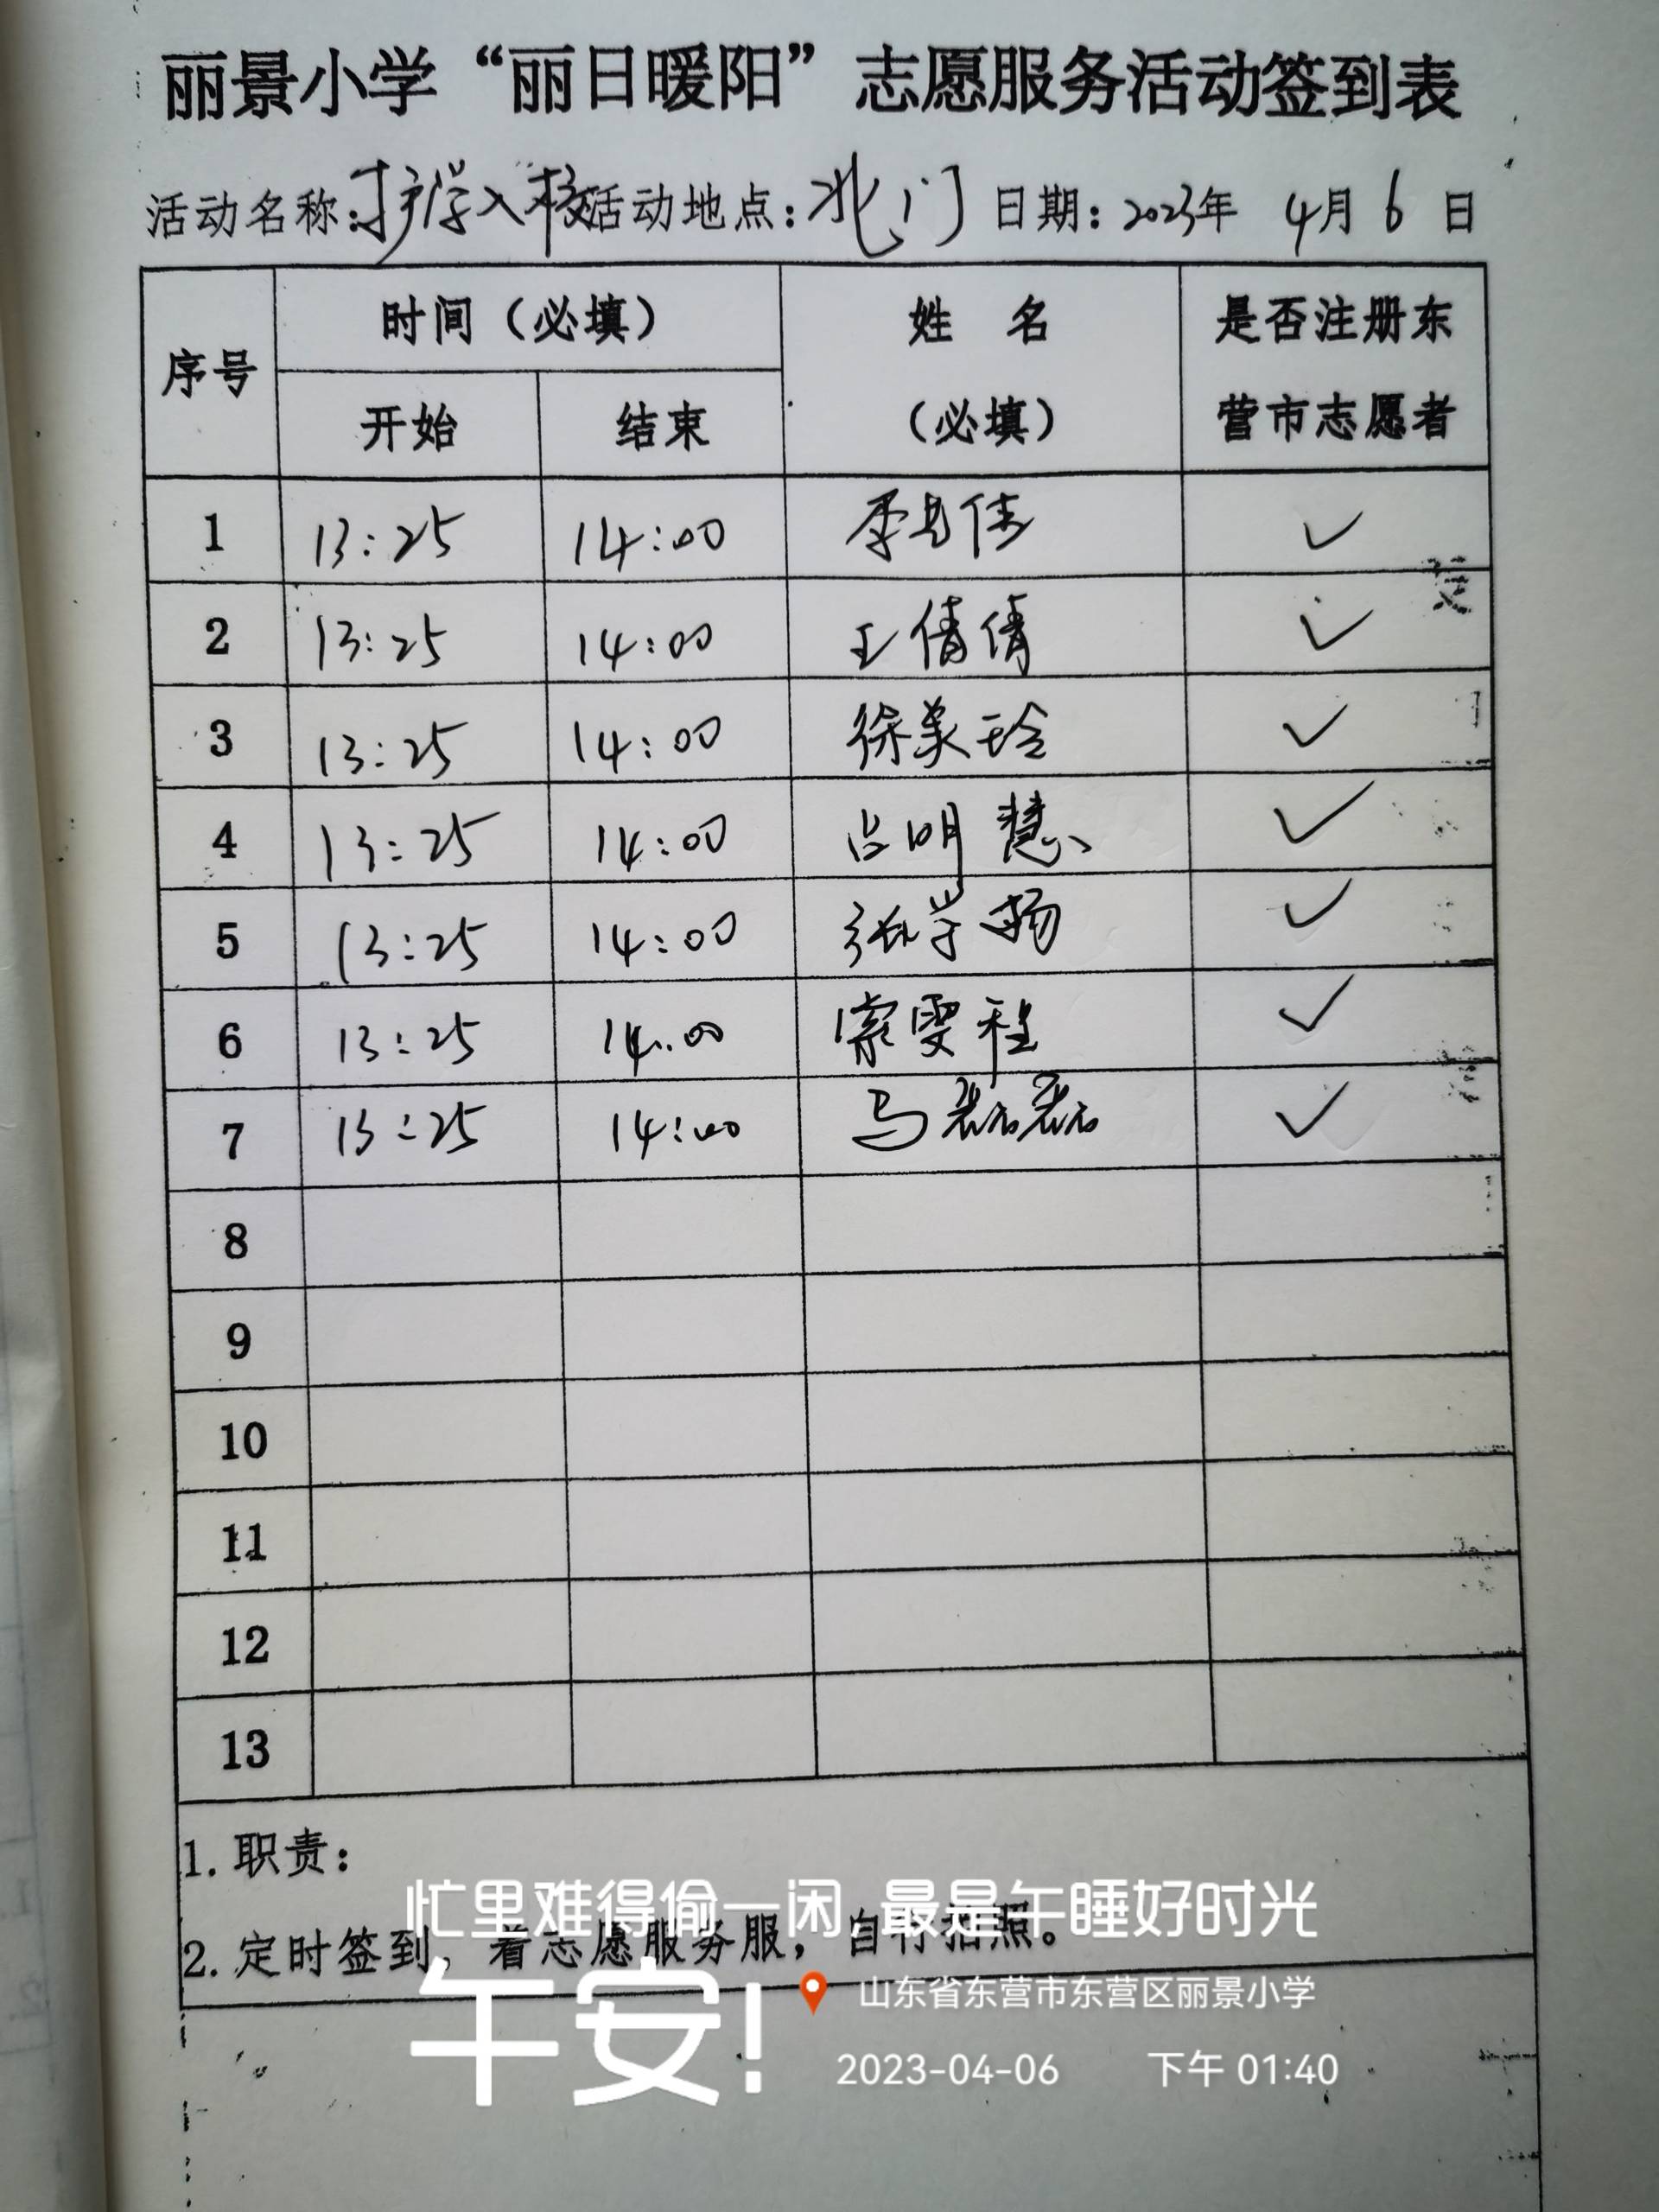 丽景小学“丽日暖阳”志愿服务活动签到表
活动名称:护学入校 活动地点:北门 日期:2023年 4月 6 日
序号 时间（必填） 姓 名（必填） 是否注册东营市志愿者
开始 结束
1 13:25 14:00 ✓
2 13:25 14:00 王倩倩 ✓
3 13:25 14:00 徐美玲 ✓
4 13:25 14:00 吕明慧 ✓
5 13:25 14:00 张学扬 ✓
6 13:25 14:00 索雯程 ✓
7 13:25 14:00 马磊磊 ✓
8
9
10
11
12
13
1.职责:
2.定时签到，着志愿服务服，自行拍照。
忙里难得偷一闲，最是午睡好时光
午安!
山东省东营市东营区丽景小学
2023-04-06 下午 01:40